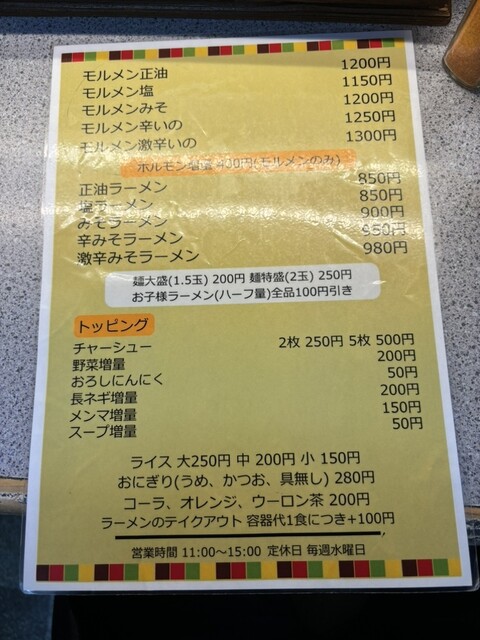 モルメン正油 1200円
モルメン塩 1150円
モルメンみそ 1200円
モルメン辛いの 1250円
モルメン激辛いの 1300円
ホルモン増量 400円(モルメンのみ)
正油ラーメン 850円
塩ラーメン 850円
みそラーメン 900円
辛みそラーメン 950円
激辛みそラーメン 980円
麺大盛(1.5玉) 200円 麺特盛(2玉) 250円
お子様ラーメン(ハーフ量)全品100円引き
トッピング
チャーシュー 2枚 250円 5枚 500円
野菜増量 200円
おろしにんにく 50円
長ネギ増量 200円
メンマ増量 150円
スープ増量 50円
ライス 大250円 中 200円 小 150円
おにぎり(うめ、かつお、具無し) 280円
コーラ、オレンジ、ウーロン茶 200円
ラーメンのテイクアウト 容器代1食につき+100円
営業時間 11:00～15:00 定休日 毎週水曜日